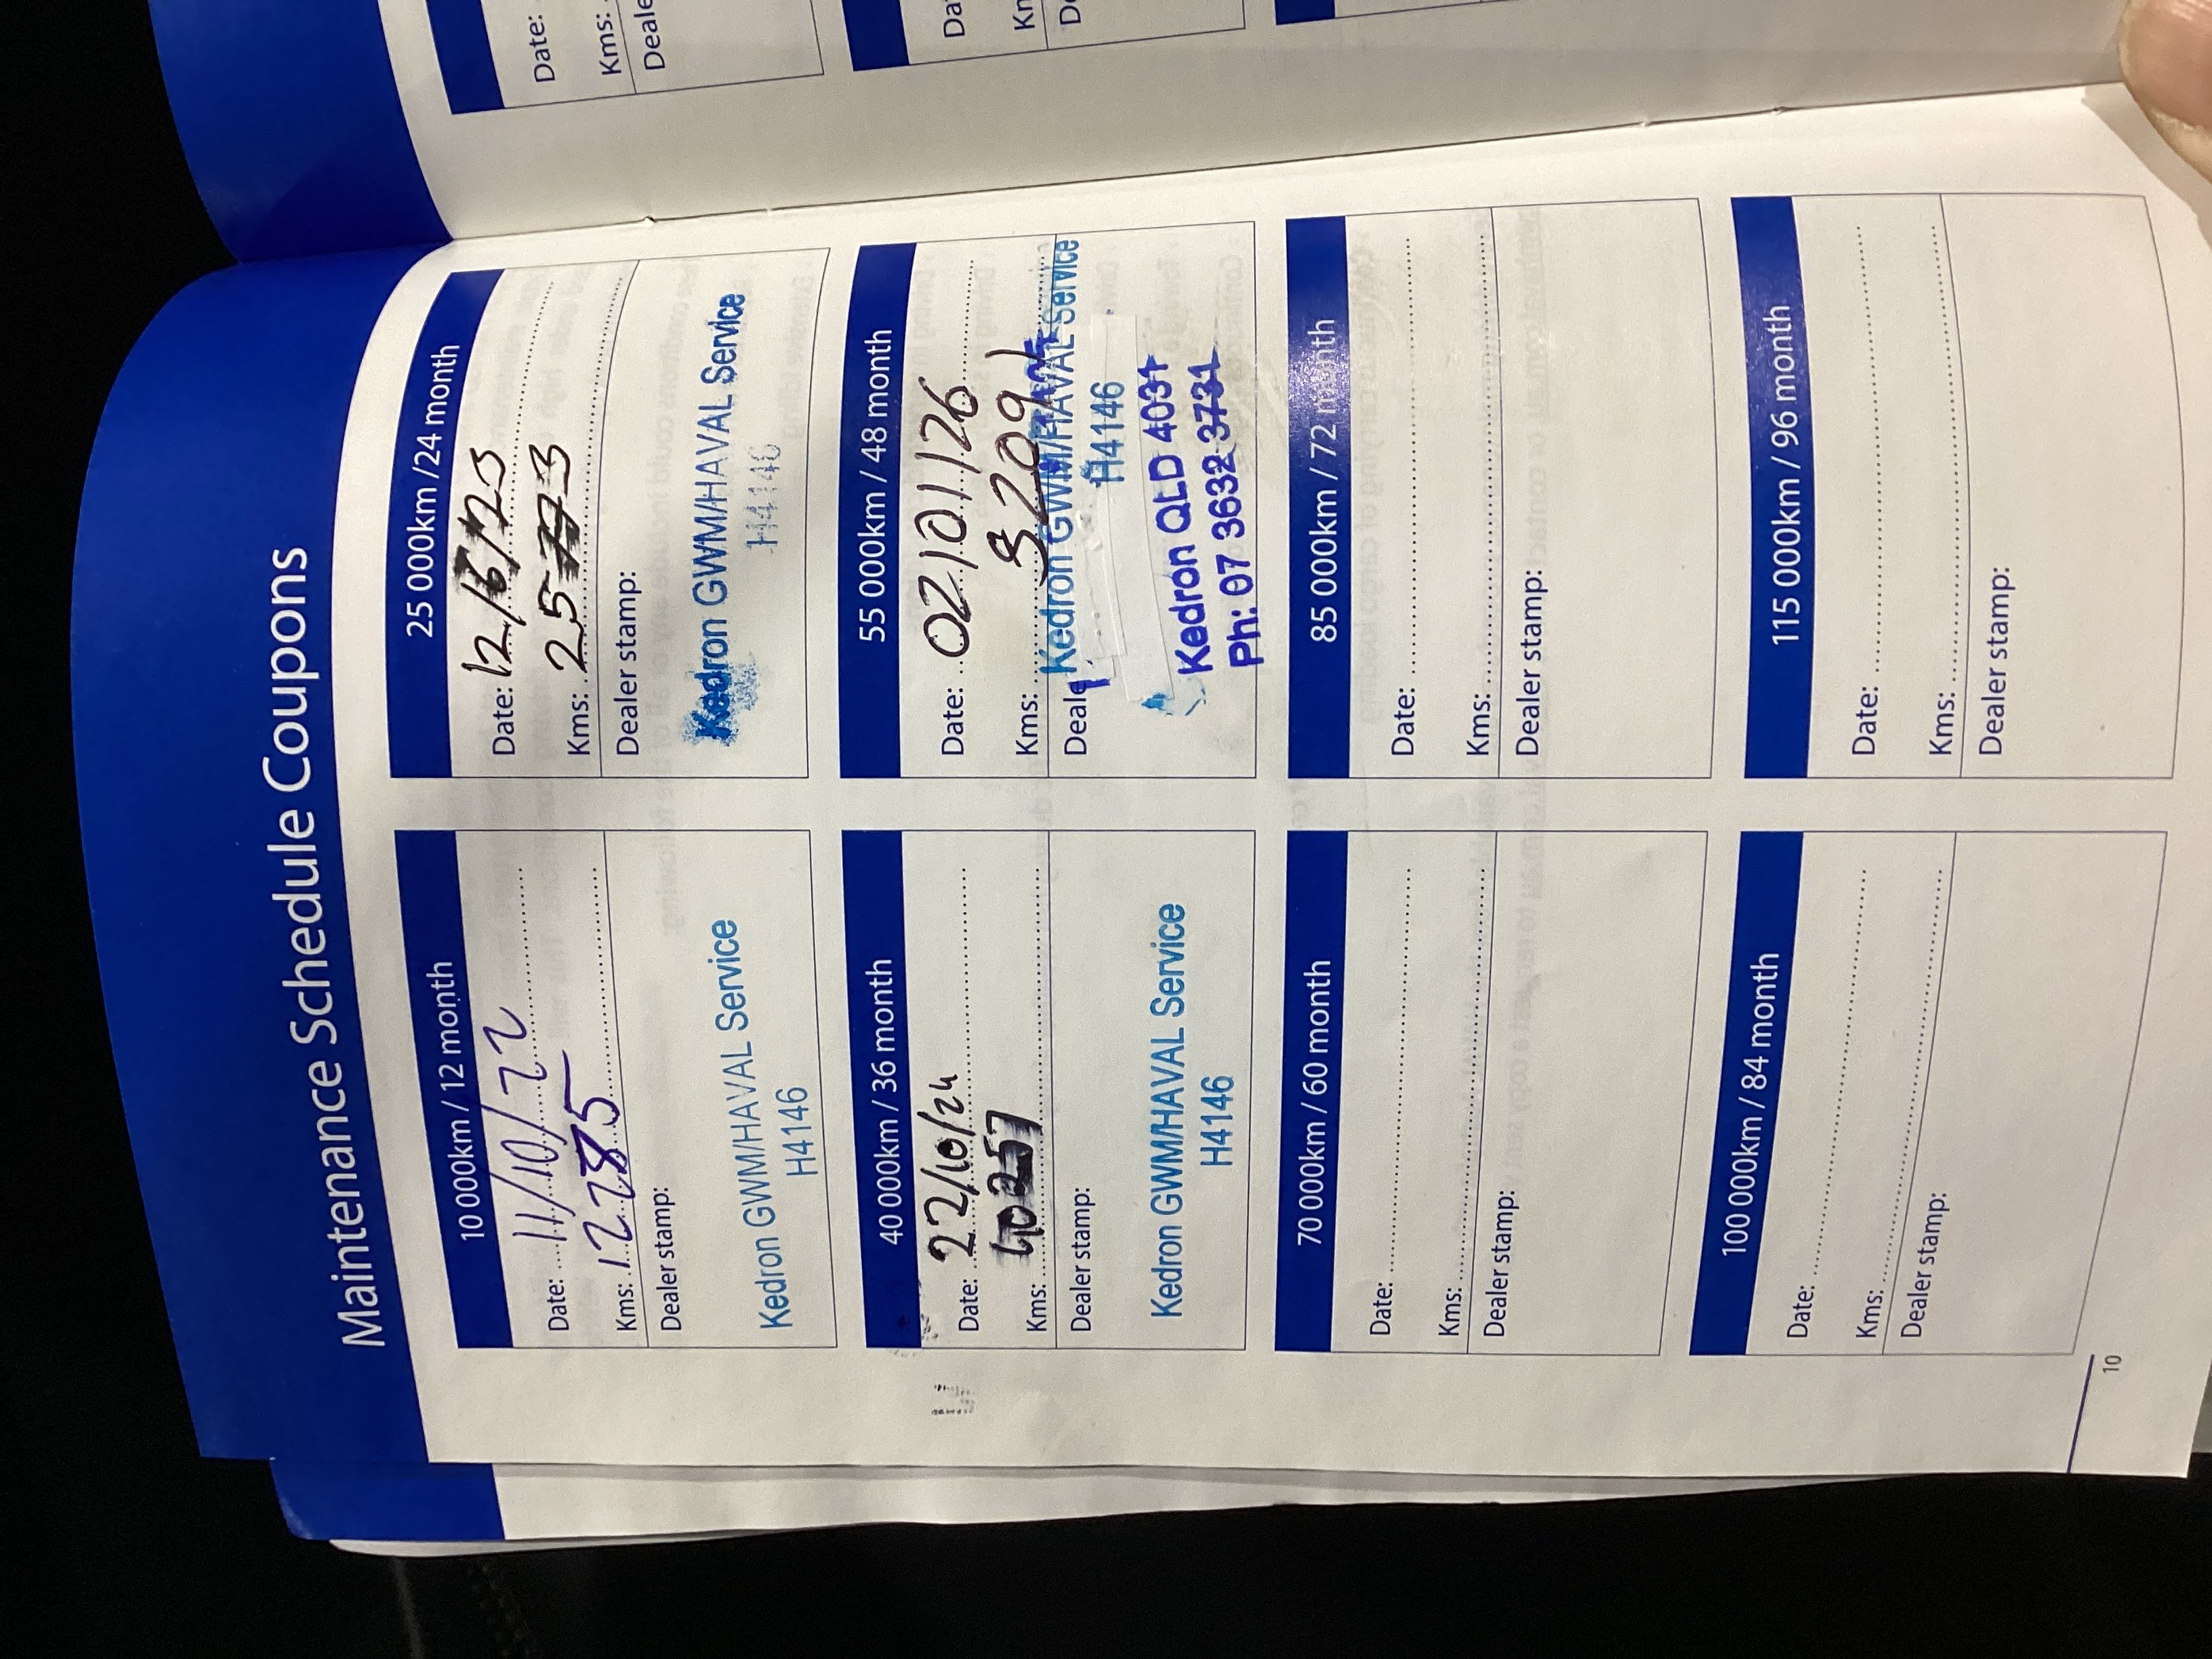 Maintenance Schedule Coupons
10 000km / 12 month
Date: 11/10/22
Kms: 12285
Dealer stamp:
Kedron GWM/HAVAL Service
H4146
25 000km /24 month
Date: 12/6/23
Kms: 25773
Dealer stamp:
Kedron GWM/HAVAL Service
H4146
40 000km / 36 month
Date: 22/10/24
Kms: 40257
Dealer stamp:
Kedron GWM/HAVAL Service
H4146
55 000km / 48 month
Date: 02/01/26
Kms:
Deale
Kedron GWM/HAVAL Service
H4146
Kedron QLD 4031
Ph: 07 3632 3731
70 000km / 60 month
Date:
Kms:
Dealer stamp:
85 000km / 72 month
Date:
Kms:
Dealer stamp:
100 000km / 84 month
Date:
Kms:
Dealer stamp:
115 000km / 96 month
Date:
Kms:
Dealer stamp:
10
Date:
Kms:
Deale
Da
Kn
De